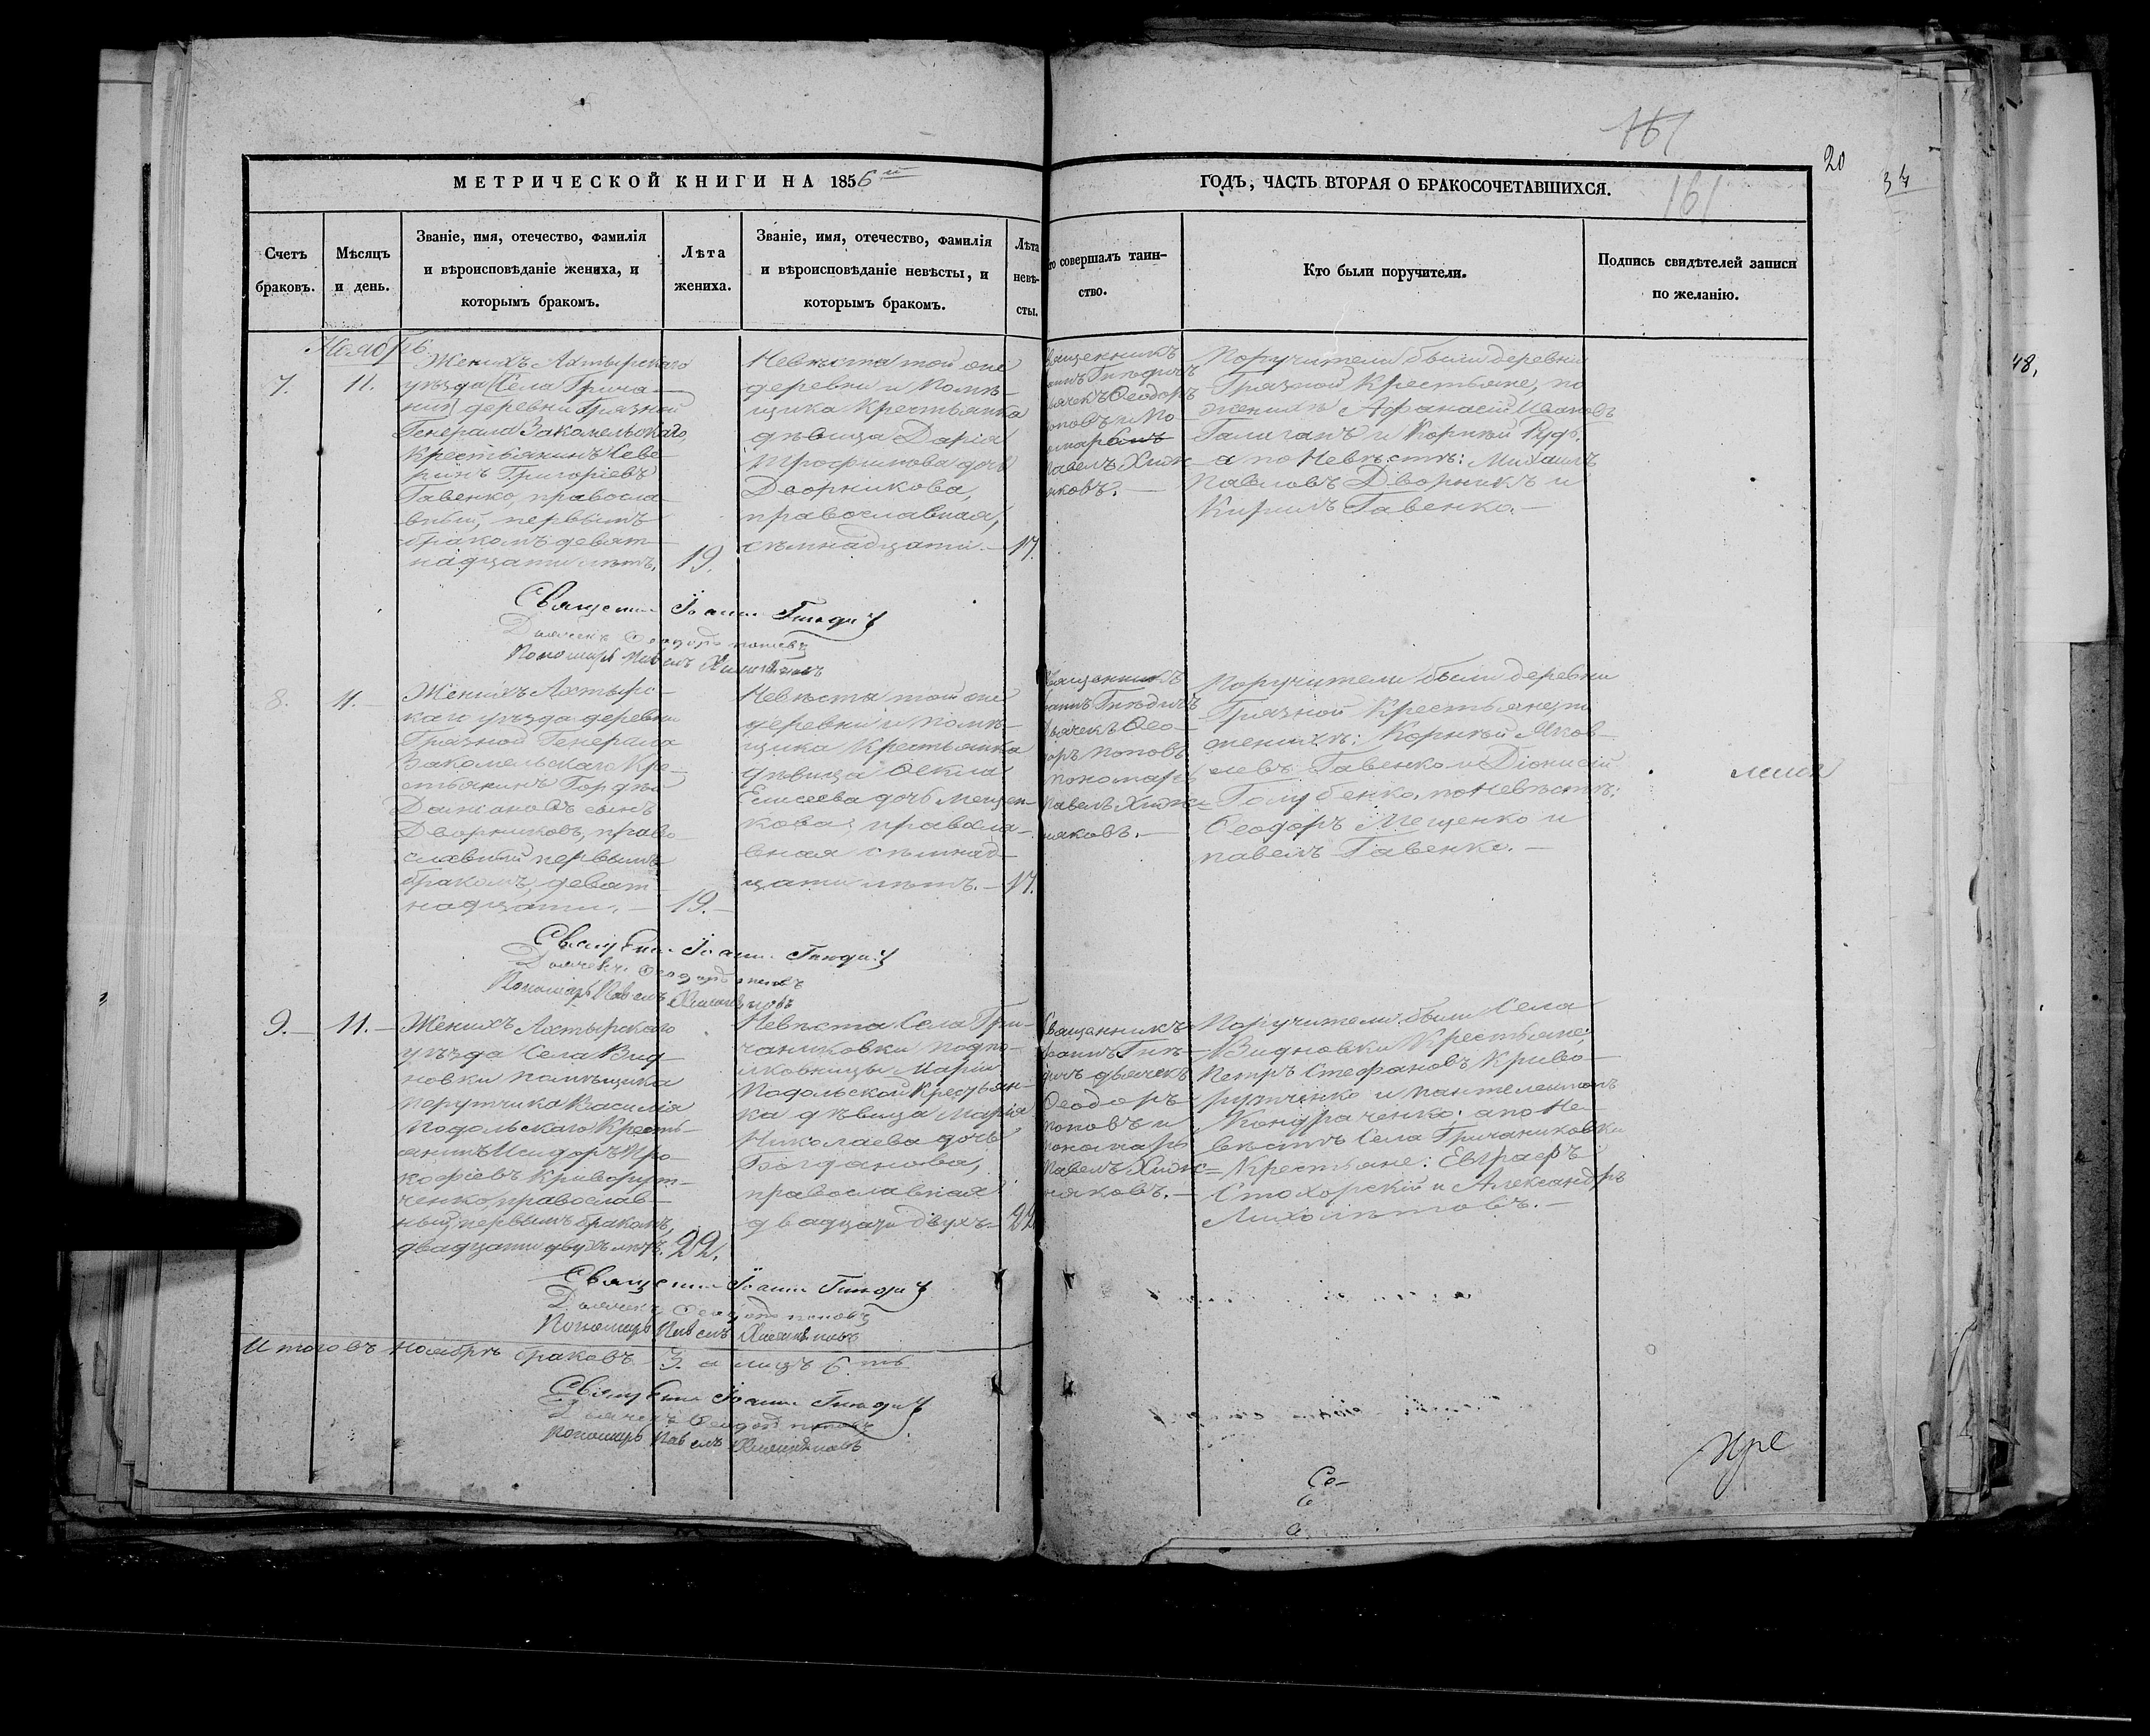 161
20
34
161
48,
МЕТРИЧЕСКОЙ КНИГИ НА 1856й
ГОДЪ, ЧАСТЬ ВТОРАЯ О БРАКОСОЧЕТАВШИХСЯ.
Счетъ браковъ.
Мѣсяцъ и день.
Званіе, имя, отечество, фамилія
и вѣроисповѣданіе жениха, и
которымъ бракомъ.
Лѣта
жениха.
Званіе, имя, отечество, фамилія
и вѣроисповѣданіе невѣсты, и
которымъ бракомъ.
Лѣта
невѣ-
сты.
то совершалъ таин-
ство.
Кто были поручители.
Подпись свидѣтелей записи
по желанію.
Ноябрь
7.
11.
Женихъ Ахтырскаго
уѣзда Села Грича-
деревни Грязной
Генерала Закомельскаго,
Крестьянинъ Севе-
ринъ Григоріевъ
Гавенко, правосла-
вный, первымъ
бракомъ девят-
надцати лѣтъ.
19.
Невѣста той же
деревни и помѣ-
щика Крестьянка
дѣвица Дарія
Трофимова дочь
Дворникова,
православная,
семнадцати.
17.
Священникъ
Іоаннъ Гнѣдичъ
Дьячекъ Ѳеодоръ
Поповъ и По
номарь
Павелъ Хиж-
няковъ.
Поручители были деревни
Грязной Крестьяне, по
женихѣ Афанасій Ивановъ
Галаганъ и Корнѣй Рудь.
а по Невѣстѣ: Михаилъ
Павловъ Дворникъ и
Кирилъ Гавенко.
Священникъ Іоаннъ Гнѣдичъ
Дьячекъ Ѳеодоръ Поповъ
Пономарь Павелъ Хижняковъ
8.
11.
Женихъ Ахтырс-
каго уѣзда деревни
Грязной Генерала
Закомельскаго Кре-
стьянинъ Гордѣй
сынъ
Дворниковъ, право
славный первымъ
бракомъ, девят-
надцати.
19.
Невѣста той же
деревни и помѣ-
щика Крестьянка
дѣвица Ѳекла
Елисеева дочь Мещен-
кова, правосла-
вная семнад-
цати лѣтъ.
17.
Священникъ
Іоаннъ Гнѣдичъ
Дьячекъ Ѳео-
доръ Поповъ
Пономарь
Павелъ Хиж-
няковъ.
Поручители были деревни
Грязной Крестьяне, по
женихѣ: Корнѣй Яков-
левъ Гавенко и Діонисій
Голубенко, по Невѣстѣ:
Ѳеодоръ Мещенко и
Павелъ Гавенко.
Священникъ Іоаннъ Гнѣдичъ
Дьячекъ Ѳеодоръ Поповъ
Пономарь Павелъ Хижняковъ
9.
11.
Женихъ Ахтырскаго
уѣзда Села Вид-
новки помѣщика
Перутчика Василія
Подольскаго Кресть-
янинъ Исидоръ Про-
кофіевъ Криворут-
ченко, православ-
ный, первымъ бракомъ,
двадцати двухъ лѣтъ.
22.
Невѣста Села Гри-
чаниковки подпо-
лковницы Маріи
Подольской Крестьян-
ка дѣвица Марія
Николаева дочь
Богданова,
православная
двадцати двухъ.
22
Священникъ
Іоаннъ Гнѣ-
дичъ дьячекъ
Ѳеодоръ
Поповъ и
пономарь
Павелъ Хиж-
няковъ.
Поручители были Села
Видновки Крестьяне;
Петръ Стефановъ Криво-
рутченко и Пантелеимонъ
Кондраченко: а по Не-
вѣстѣ Села Гричаниковки
Крестьяне: Евграфъ
Стохорскій и Александръ
Лихолѣтовъ.
Священникъ Іоаннъ Гнѣдичъ
Дьячекъ Ѳеодоръ Поповъ
Пономарь Павелъ Хижняковъ
Итого въ Ноябрѣ браковъ 3. а лицъ 6.ть
Священникъ Іоаннъ Гнѣдичъ
Дьячекъ Ѳеодоръ Поповъ
Пономарь Павелъ Хижняковъ